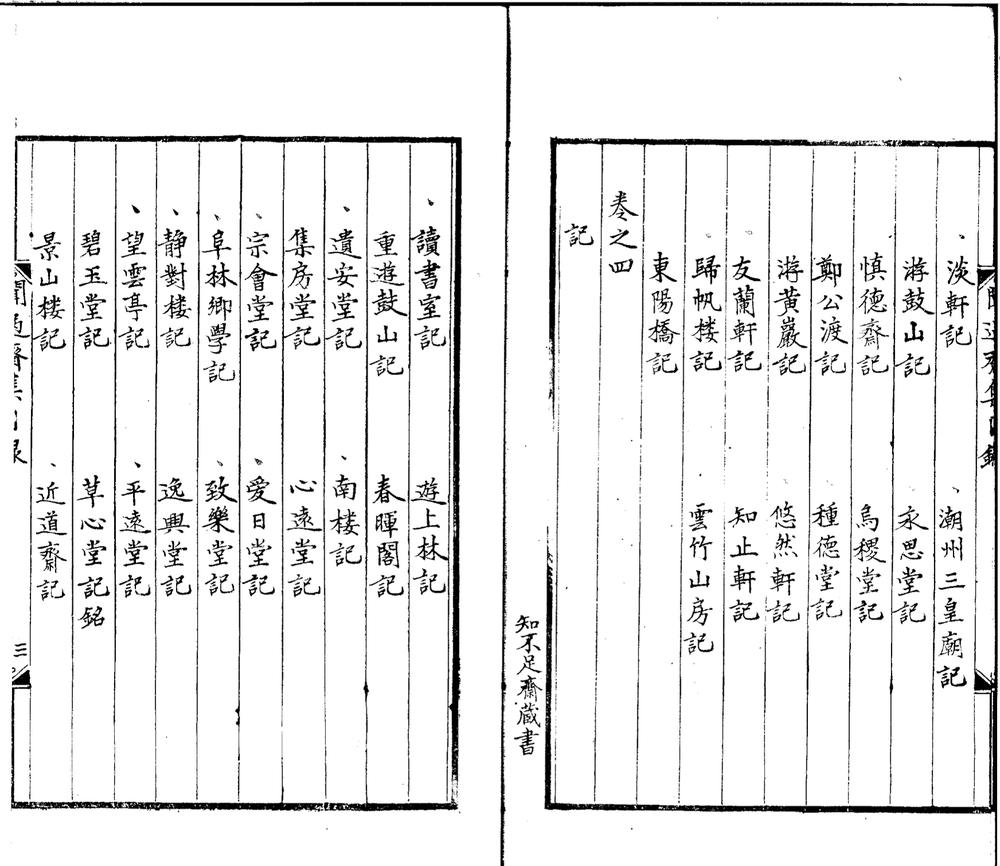 淡軒記 潮州三皇廟記
游鼓山記 永思堂記
慎德齋記 烏稷堂記
鄭公渡記 種德堂記
游黃巖記 悠然軒記
友蘭軒記 知止軒記
歸帆楼記 雲竹山房記
東陽橋記
卷之四
記
知不足齋蔵書
讀書室記 遊上林記
重遊鼓山記 春暉閣記
遺安堂記 南楼記
集房堂記 心遠堂記
宗會堂記 愛日堂記
阜林鄉學記 致樂堂記
静對楼記 逸興堂記
望雲亭記 平遠堂記
碧玉堂記 草心堂記銘
景山楼記 近道齋記
聞過齋集目录
三